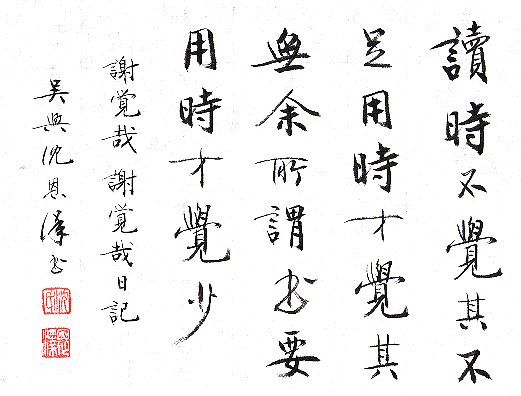 讀時不覺其不
足用時才覺其
無余所謂书要
用時才覺少
謝覚哉 謝覚哉日記
吳興沈恩澤书